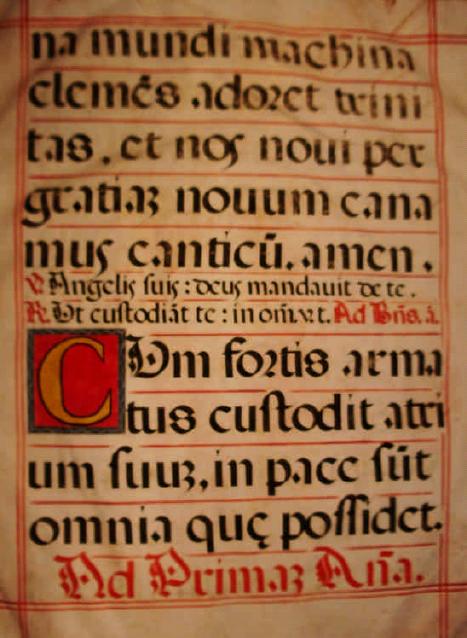 na mundi machina
clemēs adoret trini
tas, et nos noui per
gratiaꝫ nouum cana
mus canticū. amen.
V. Angelis suis: deus mandauit de te.
R. Ut custodiāt te: in oīb. v. t. Ad Bn̄s. ā.
CUm fortis arma
tus custodit atri
um suuꝫ, in pace sūt
omnia quę possidet.
Ad Primaꝫ Añā.